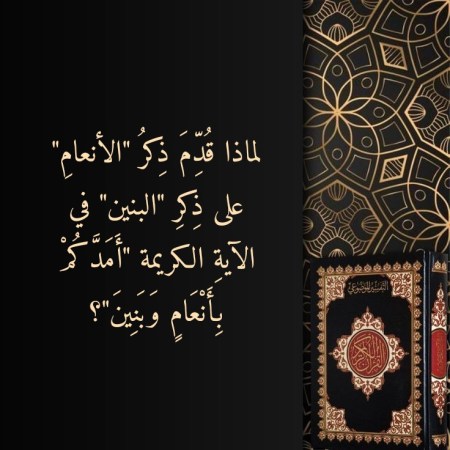 لماذا قُدِّمَ ذِكرُ "الأنعامِ"
على ذِكرِ "البنين" في
الآيةِ الكريمة "أَمَدَّكُمْ
بِأَنْعَامٍ وَبَنِينَ"؟
القرآن الكريم